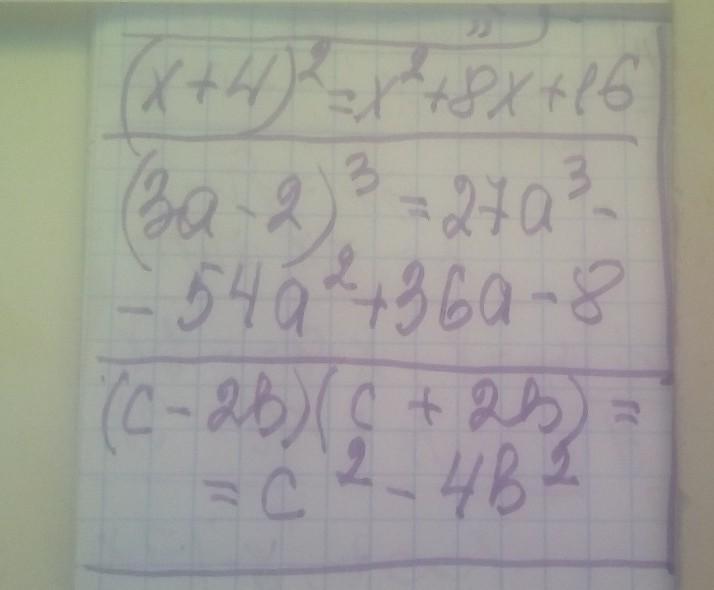 (x+4)² = x²+8x+16
(3a-2)³ = 27a³-
- 54a²+36a-8
(c-2b)(c + 2b) =
= c² - 4b²